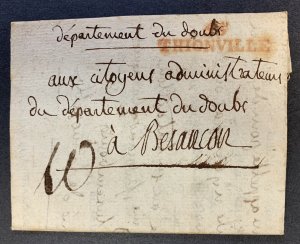 département du doubs
THIONVILLE
aux citoyens administrateurs
du département du doubs
à Besancon